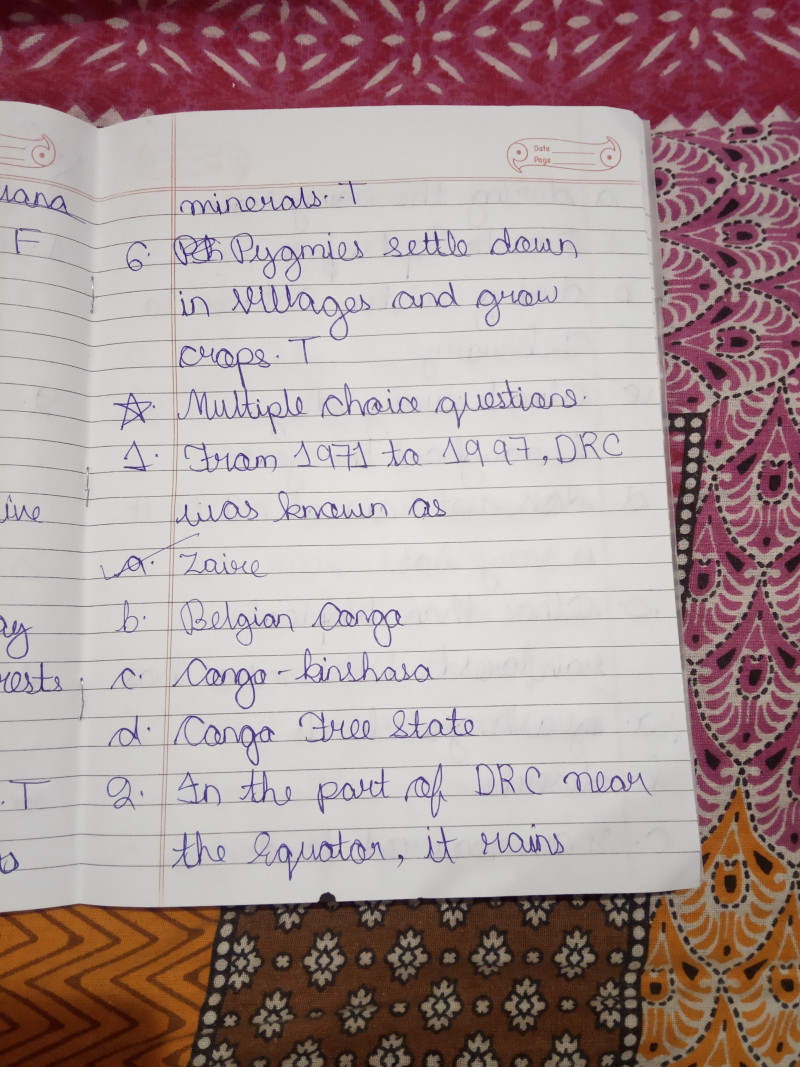 Date
Page
minerals. T
F
6. Pygmies settle down
in villages and grow
crops. T
☆. Multiple choice questions.
1. From 1971 to 1997, DRC
was known as
a. Zaire
b. Belgian Congo
c. Congo-kinshasa
rests
d. Congo Free State
. T
2. In the part of DRC near
the Equator, it rains